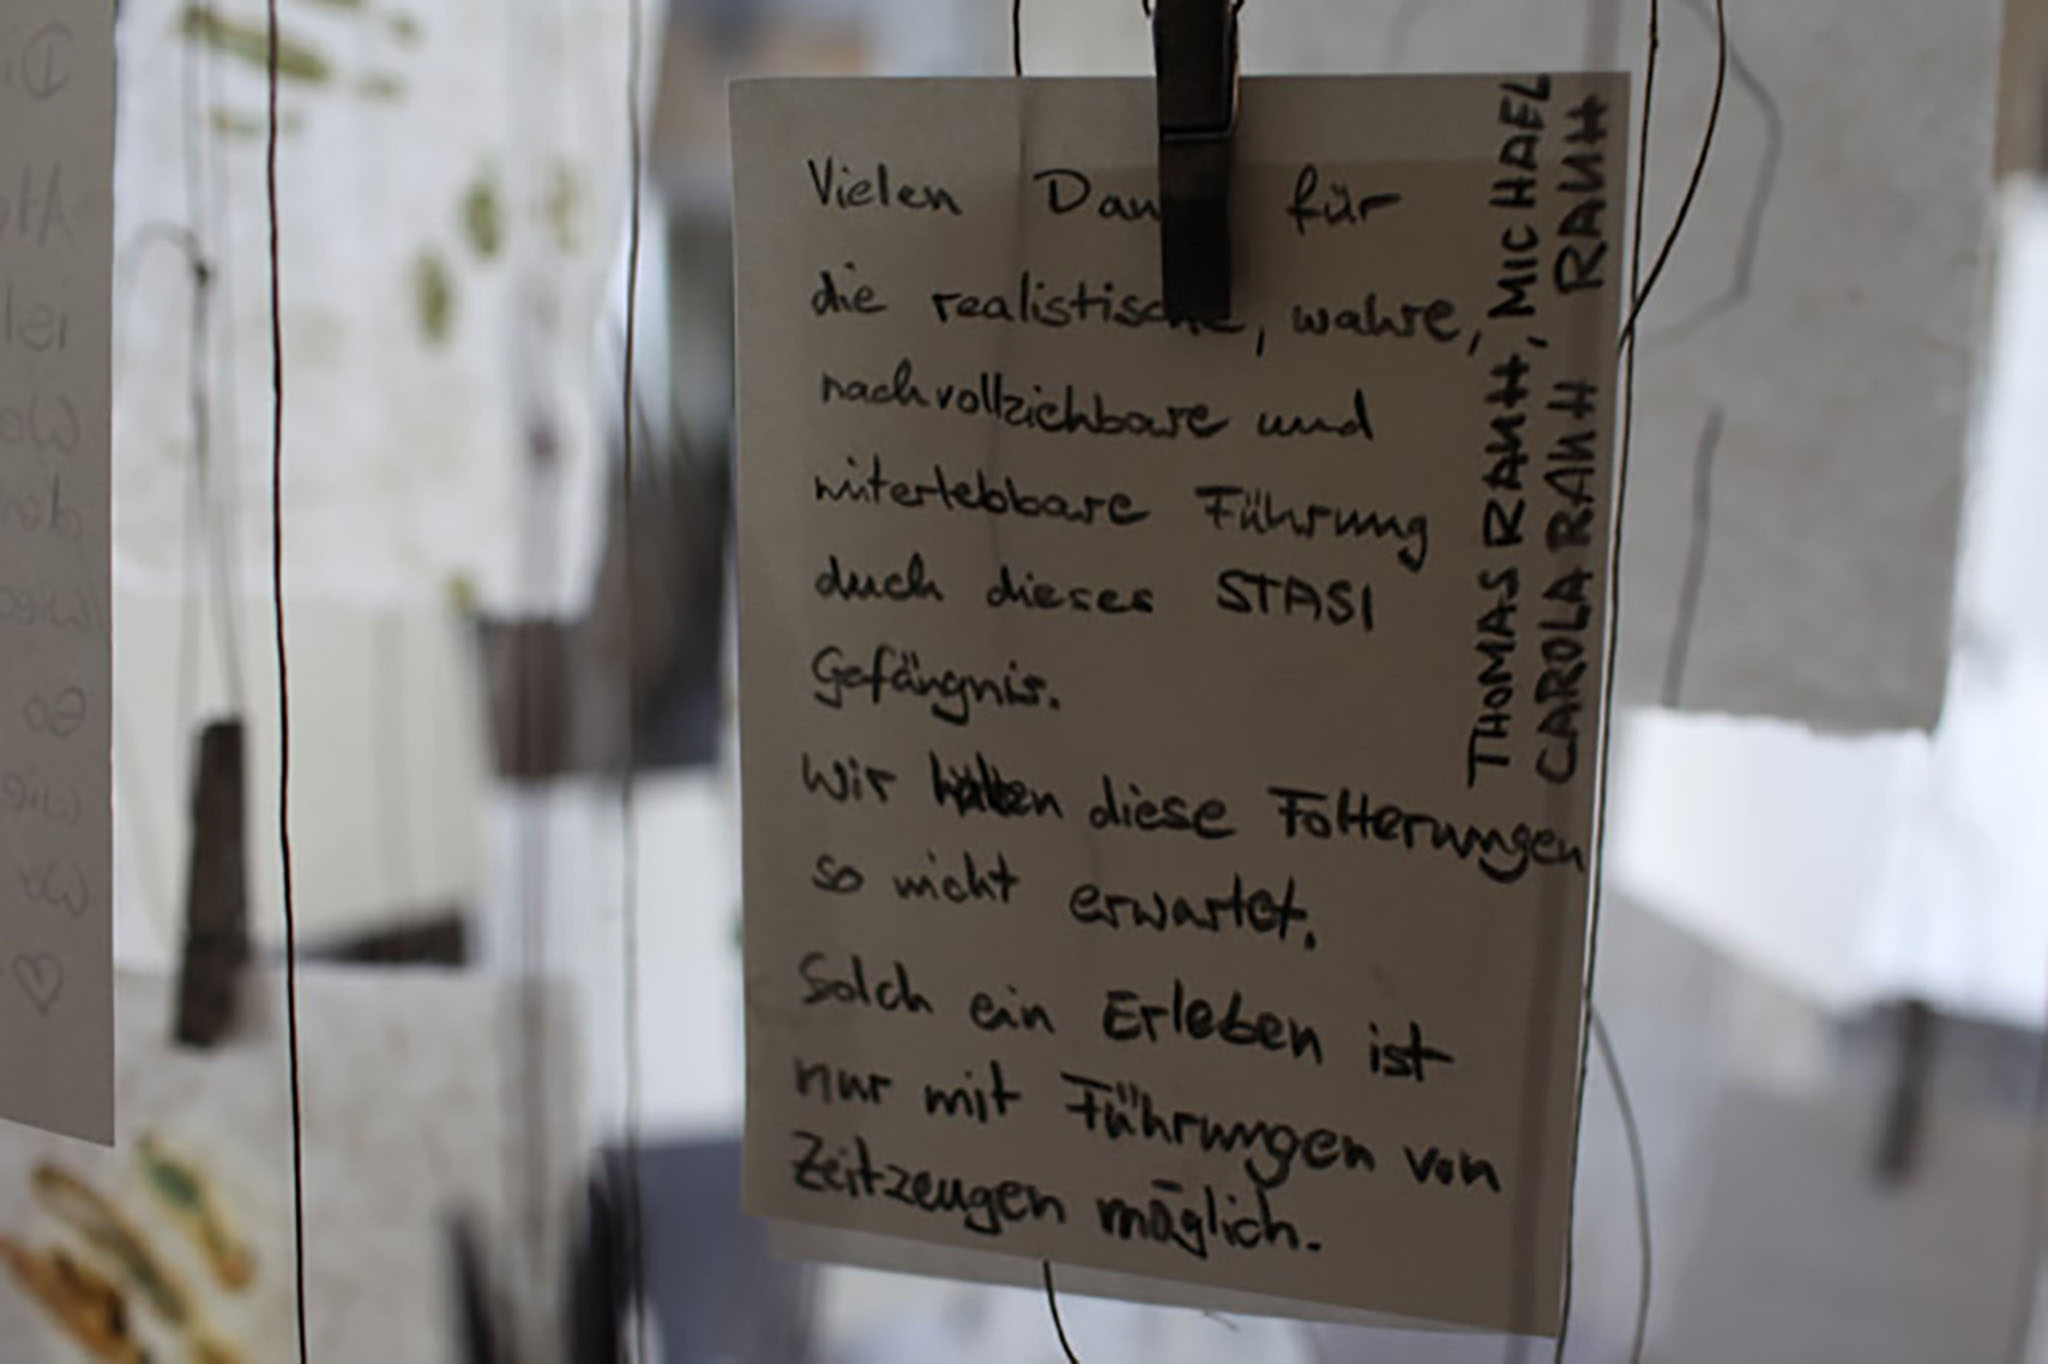 Vielen Dank für
die realistische, wahre,
nachvollziehbare und
miterlebbare Führung
durch dieses STASI
Gefängnis.
Wir hätten diese Folterungen
so nicht erwartet.
Solch ein Erleben ist
nur mit Führungen von
Zeitzeugen möglich.
THOMAS RAUH, MICHAEL RAUH
CAROLA RAUH